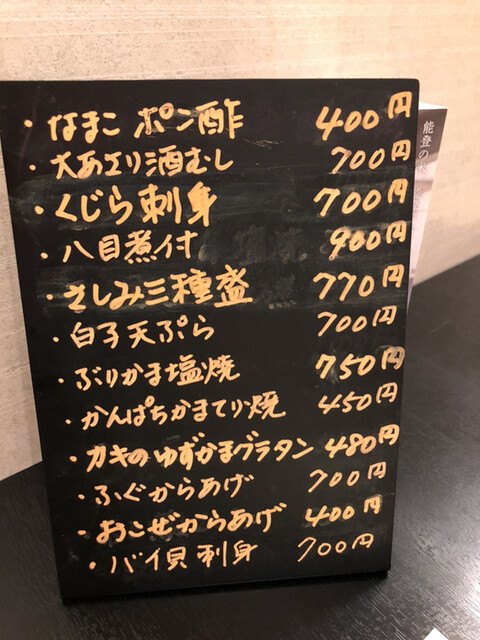 ・なまこ ポン酢 400円
・大あさり酒むし 700円
・くじら刺身 700円
・八目煮付 900円
・さしみ三種盛 770円
・白子天ぷら 700円
・ぶりかま塩焼 750円
・かんぱちかまてり焼 450円
・カキのゆずかまグラタン 480円
・ふぐからあげ 700円
・おこぜからあげ 400円
・バイ貝刺身 700円
能登の